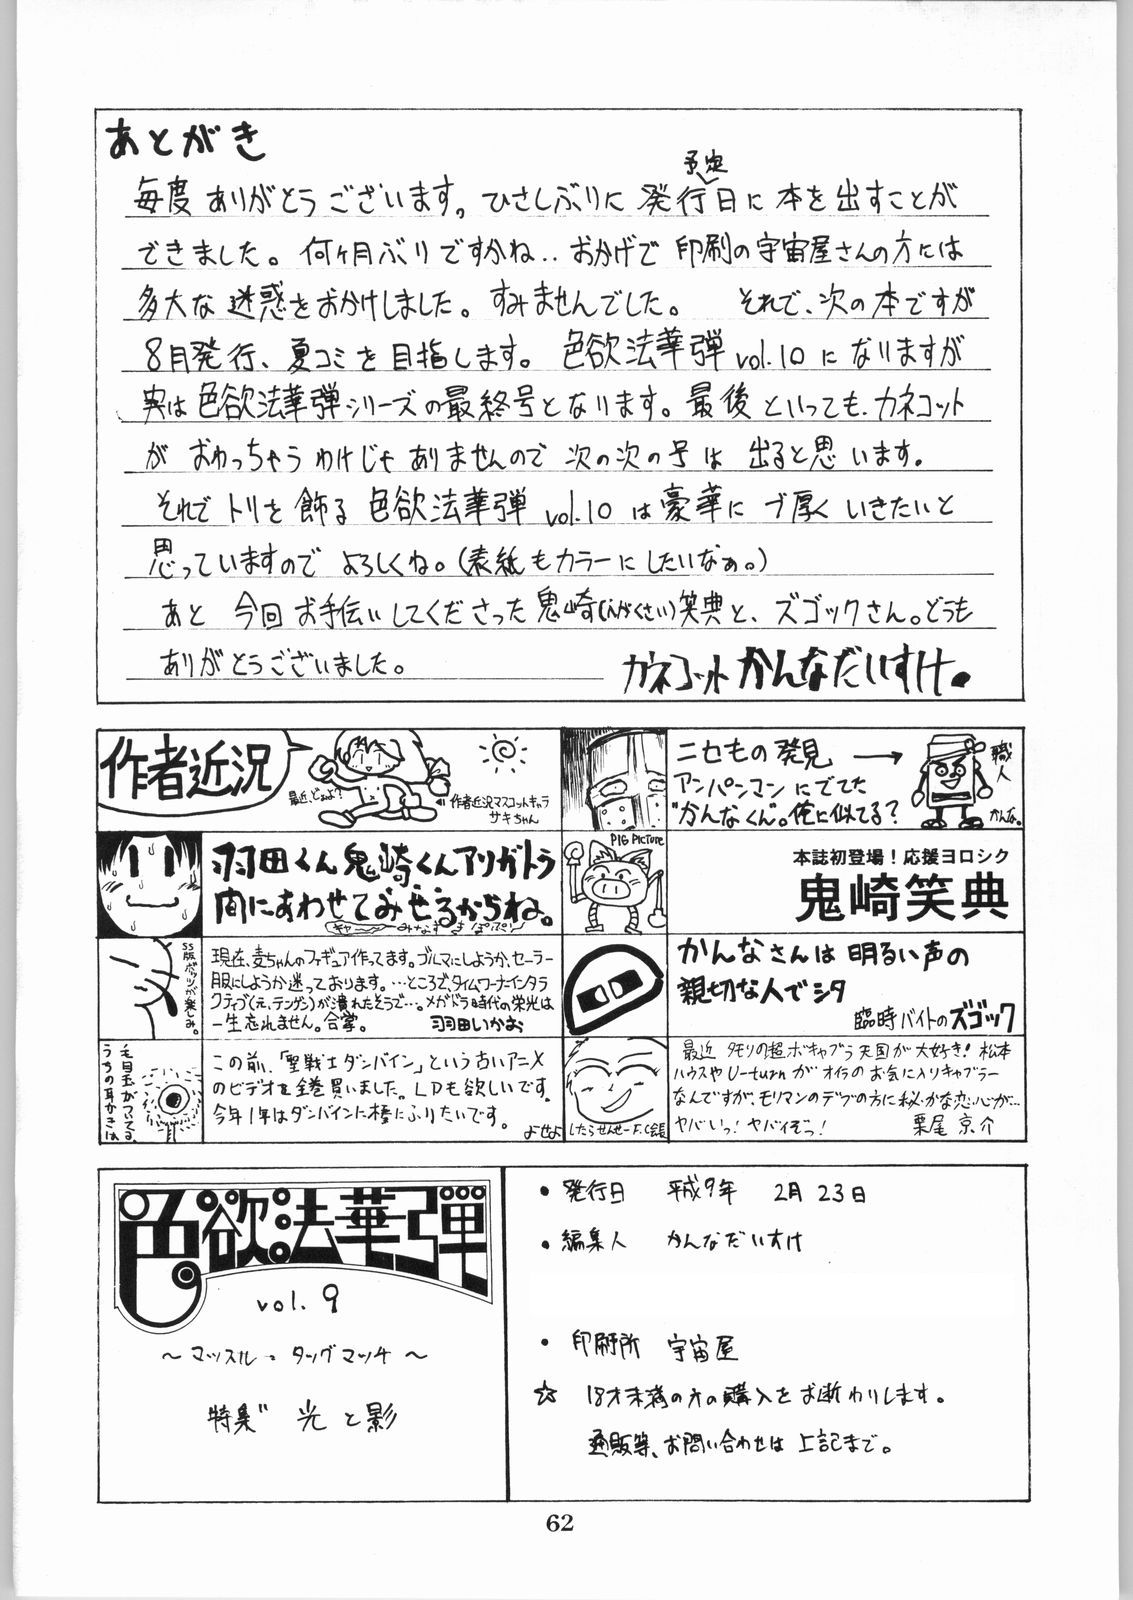 あとがき
毎度ありがとうございます。ひさしぶりに発行予定日に本を出すことが
できました。何ヶ月ぶりですかね‥おかげで印刷の宇宙屋さんの方には
多大な迷惑をおかけしました。すみませんでした。 それで、次の本ですが
8月発行、夏コミを目指します。色欲法華弾vol.10になりますが
実は色欲法華弾シリーズの最終号となります。最後といっても、カネコット
がおわっちゃうわけじゃありませんので次の次の号は出ると思います。
それでトリを飾る色欲法華弾vol.10は豪華にブ厚くいきたいと
思っていますのでよろしくね。(表紙もカラーにしたいなぁ。)
あと今回お手伝いしてくださった鬼崎(えがくさい)笑典と、ズゴックさん。どうも
ありがとうございました。
カネコット かんなだいすけ。
作者近況
最近、どぉよ?
作者近況マスコットキャラ
サキちゃん
ニセもの発見 →
アンパンマンにでてた
"かんなくん"。俺に似てる?
職人
かんな。
羽田くん鬼崎くんアリガトラ
間にあわせてみせるからね。
PIG PICTURE
本誌初登場!応援ヨロシク
鬼崎笑典
SS版ポリッツが楽しみ。
現在、麦ちゃんのフィギュア作ってます。ブルマにしようか、セーラー
服にしようか迷っております。…ところで、タイムワーナーインタラ
クティブ(え、テンゲン)が潰れたそうで…。メガドラ時代の栄光は
一生忘れません。合掌。 羽田いかお
かんなさんは明るい声の
親切な人でシタ
臨時バイトのズゴック
うちの耳かきは
毛目玉がついてる。
この前、「聖戦士ダンバイン」という古いアニメ
のビデオを全巻買いました。LDも欲しいです。
今年1年はダンバインに棒にふりたいです。
よせよ
したらせんせーF.C会長
最近タモリの超ボキャブラ天国が大好き!松本
ハウスやU-turnがオイラのお気に入りキャブラー
なんですが、モリマンのデブの方に秘かな恋心が…
ヤバいっ!ヤバイぞっ! 栗尾京介
色欲法華弾
vol.9
～マッスル・タッグマッチ～
特集 光と影
・発行日 平成9年 2月23日
・編集人 かんなだいすけ
・印刷所 宇宙屋
☆ 18才未満の方の購入をお断わりします。
通販等、お問い合わせは上記まで。
62